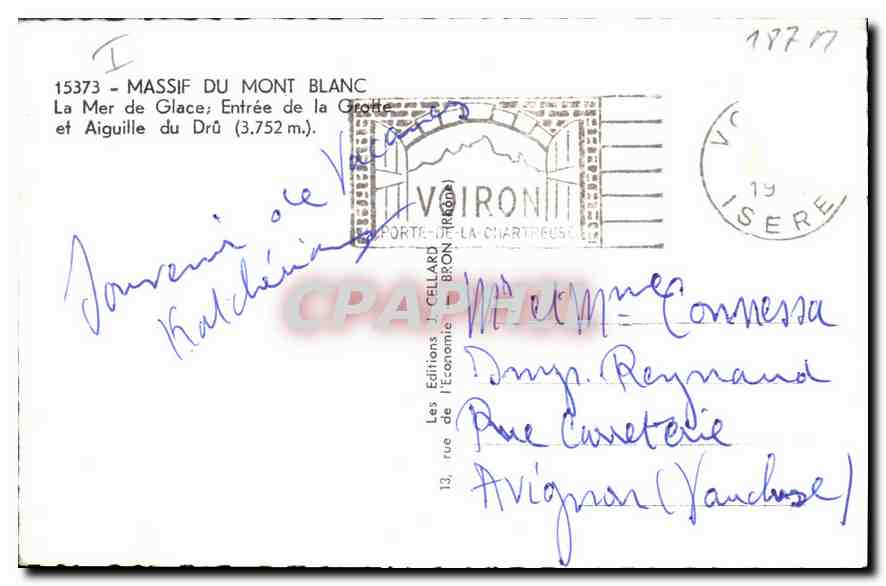 I
187 M
15373 - MASSIF DU MONT BLANC
La Mer de Glace; Entrée de la Grotte
et Aiguille du Drû (3.752 m.).
VOIRON
PORTE-DE-LA-CHARTREUSE
VO
19
ISERE
Souvenir de Vacances
CPAPHIL
Les Editions J. CELLARD
13, rue de l'Economie BRON (Rhône)
Mr et Mme Connessa
Reynaud
Rue Carreterie
Avignon (Vaucluse)